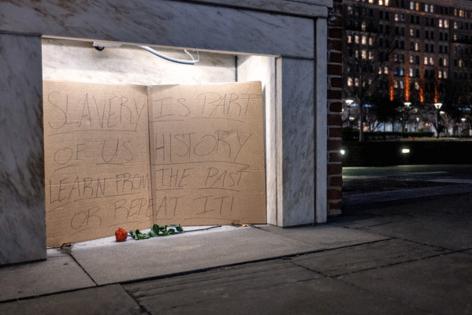 SLAVERY IS PART
OF US HISTORY
LEARN FROM THE PAST
OR REPEAT IT!